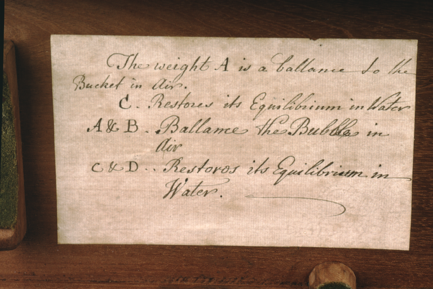 The weight A is a ballance to the
Bucket in Air.
C. Restores its Equilibrium in Water
A & B. Ballance the Bubble in
Air
C & D.. Restores its Equilibrium in
Water.